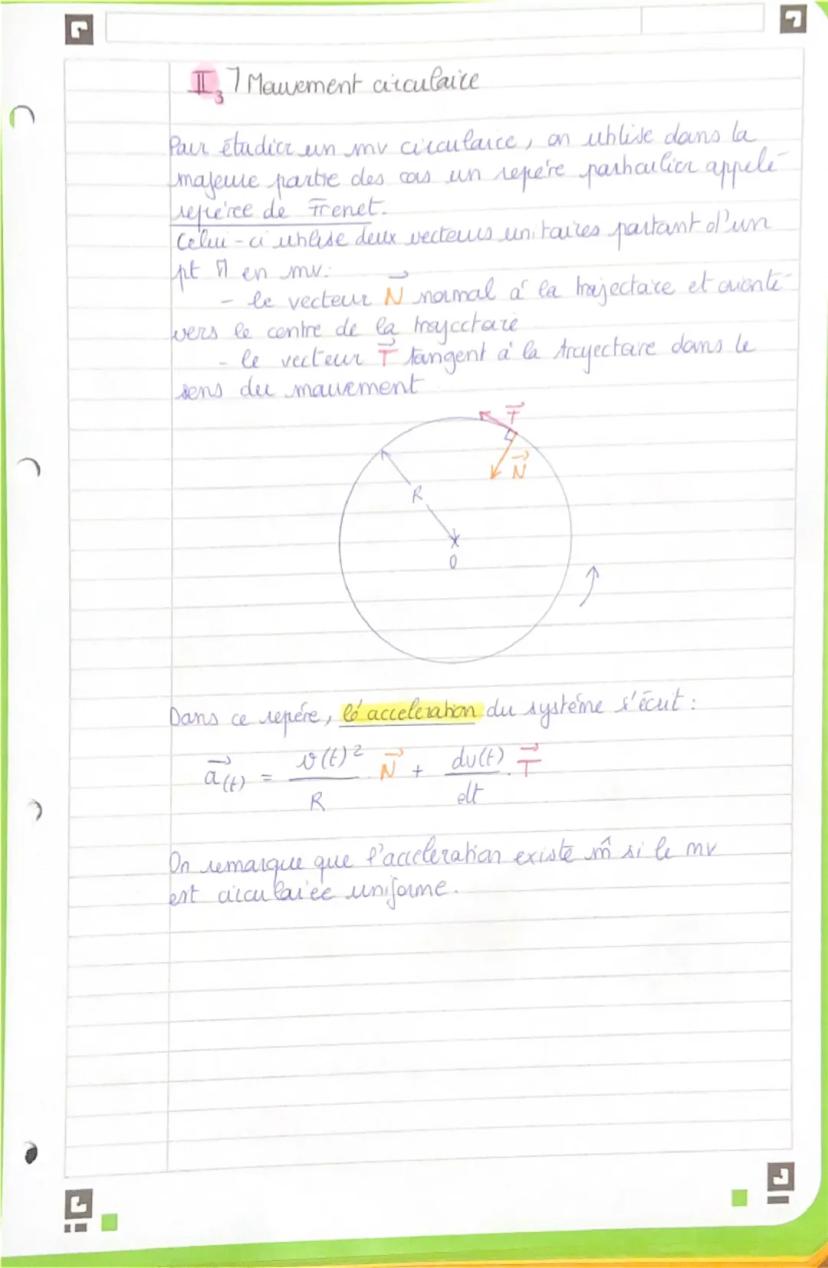 II 3 7 Mouvement circulaire
Pour étudier un mv circulaire, on utilise dans la
majeure partie des cas un repère particulier appelé
repère de Frenet.
Celui-ci utilise deux vecteurs unitaires partant d'un
pt M en mv:
- le vecteur N⃗ normal à la trajectoire et orienté
vers le centre de la trajectoire
- le vecteur T⃗ tangent à la trajectoire dans le
sens du mouvement
T⃗
N⃗
R
O
Dans ce repère, l'acceleration du système s'écrit :
a⃗(t) = v(t)²/R N⃗ + dv(t)/dt . T⃗
On remarque que l'acceleration existe m̂ si le mv
est circulaire uniforme.